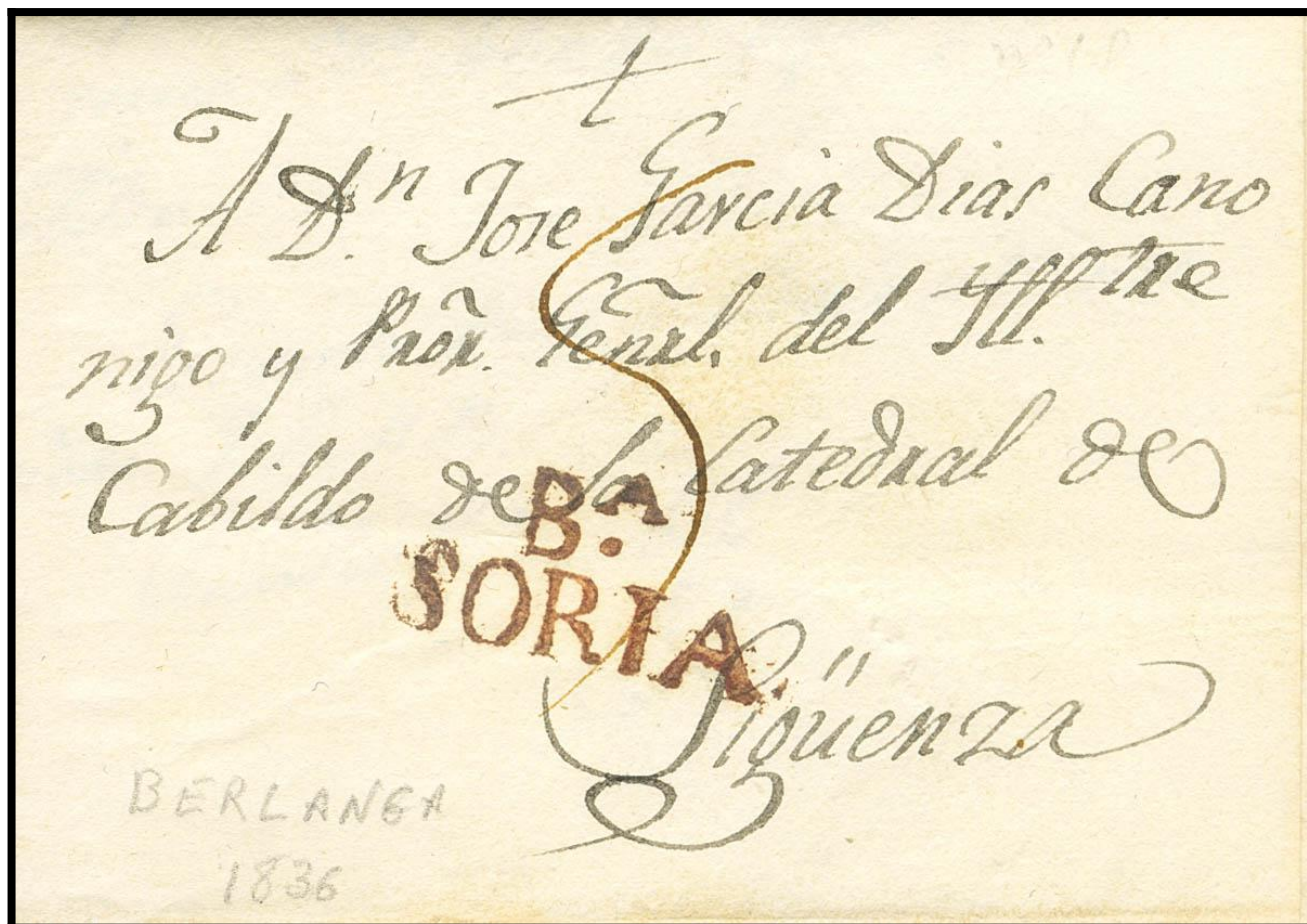 A D.n Jose Garcia Dias Cano
nigo y Pror. Genrl. del Ill.tre
Cabildo de la Catedral de
Sigüenza
B.A
SORIA
5
BERLANGA
1836